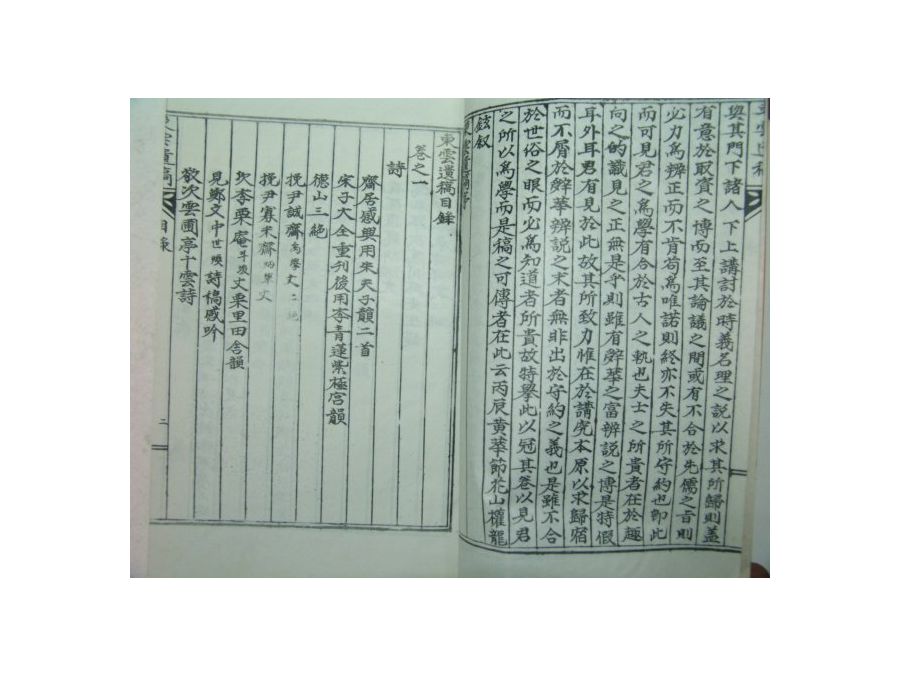 與其門下諸人下上講討於時義名理之說以求其所歸則盖
有意於取資之博而至其論議之間或有不合於先儒之旨則
必力爲辨正而不肯苟爲唯諾則終亦不失其所守約也卽此
而可見君之爲學有合於古人之軌也夫士之所貴者在於趣
向之的識見之正無是乎則雖有辭華之富辨說之博是特假
耳外耳君有見於此故其所致力惟在於講究本原以求歸宿
而不屑於辭華辨說之末者無非出於守約之義也是雖不合
於世俗之眼而必爲知道者所貴故特擧此以冠其卷以見君
之所以爲學而是稿之可傳者在此云丙辰黃華節花山權龍
鉉叙
東雲遺稿目錄
卷之一
詩
齋居感興用朱夫子韻二首
宋子大全重刊後用李青蓮紫極宮韻
德山三絕
挽尹誠齋
挽尹寡來齋
次李栗庵斗煥丈栗里田舍韻
見鄭文中世煥詩稿感吟
敬次雲圃亭十雲詩
目錄
二